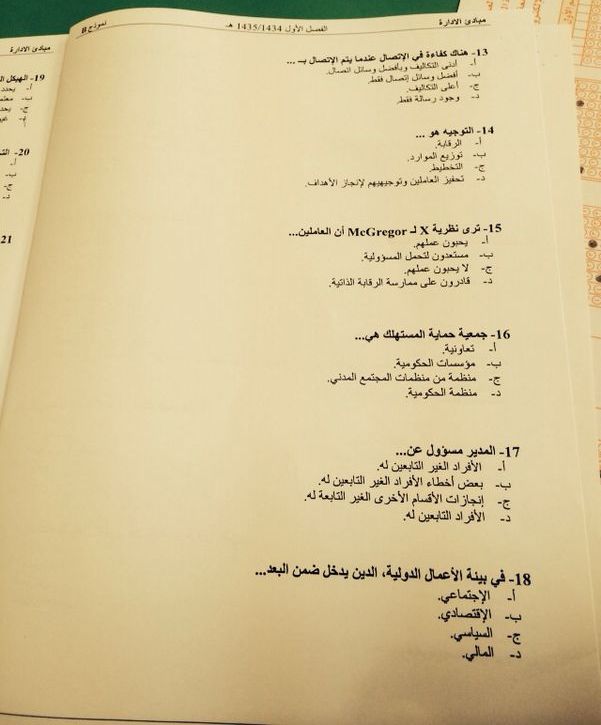 مبادئ الادارة
الفصل الأول 1435/1434 هـ
نموذج B
13- هناك كفاءة في الإتصال عندما يتم الإتصال بـ ...
أ- أدنى التكاليف وبأفضل وسائل اتصال.
ب- أفضل وسائل إتصال فقط.
ج- أعلى التكاليف.
د- وجود رسالة فقط.
14- التوجيه هو ...
أ- الرقابة.
ب- توزيع الموارد.
ج- التخطيط.
د- تحفيز العاملين وتوجيههم لإنجاز الأهداف.
15- ترى نظرية X لـ McGregor أن العاملين...
أ- يحبون عملهم.
ب- مستعدون لتحمل المسؤولية.
ج- لا يحبون عملهم.
د- قادرون على ممارسة الرقابة الذاتية.
16- جمعية حماية المستهلك هي...
أ- تعاونية.
ب- مؤسسات الحكومية.
ج- منظمة من منظمات المجتمع المدني.
د- منظمة الحكومية.
17- المدير مسؤول عن...
أ- الأفراد الغير التابعين له.
ب- بعض أخطاء الأفراد الغير التابعين له.
ج- إنجازات الأقسام الأخرى الغير التابعة له.
د- الأفراد التابعين له.
18- في بيئة الأعمال الدولية، الدين يدخل ضمن البعد...
أ- الإجتماعي.
ب- الإقتصادي.
ج- السياسي.
د- المالي.
مبادئ الادارة
19- الهيكل
أ- يحدد
ب-
ج- يحدد
20-
أ-
ب-
ج-
د-
21